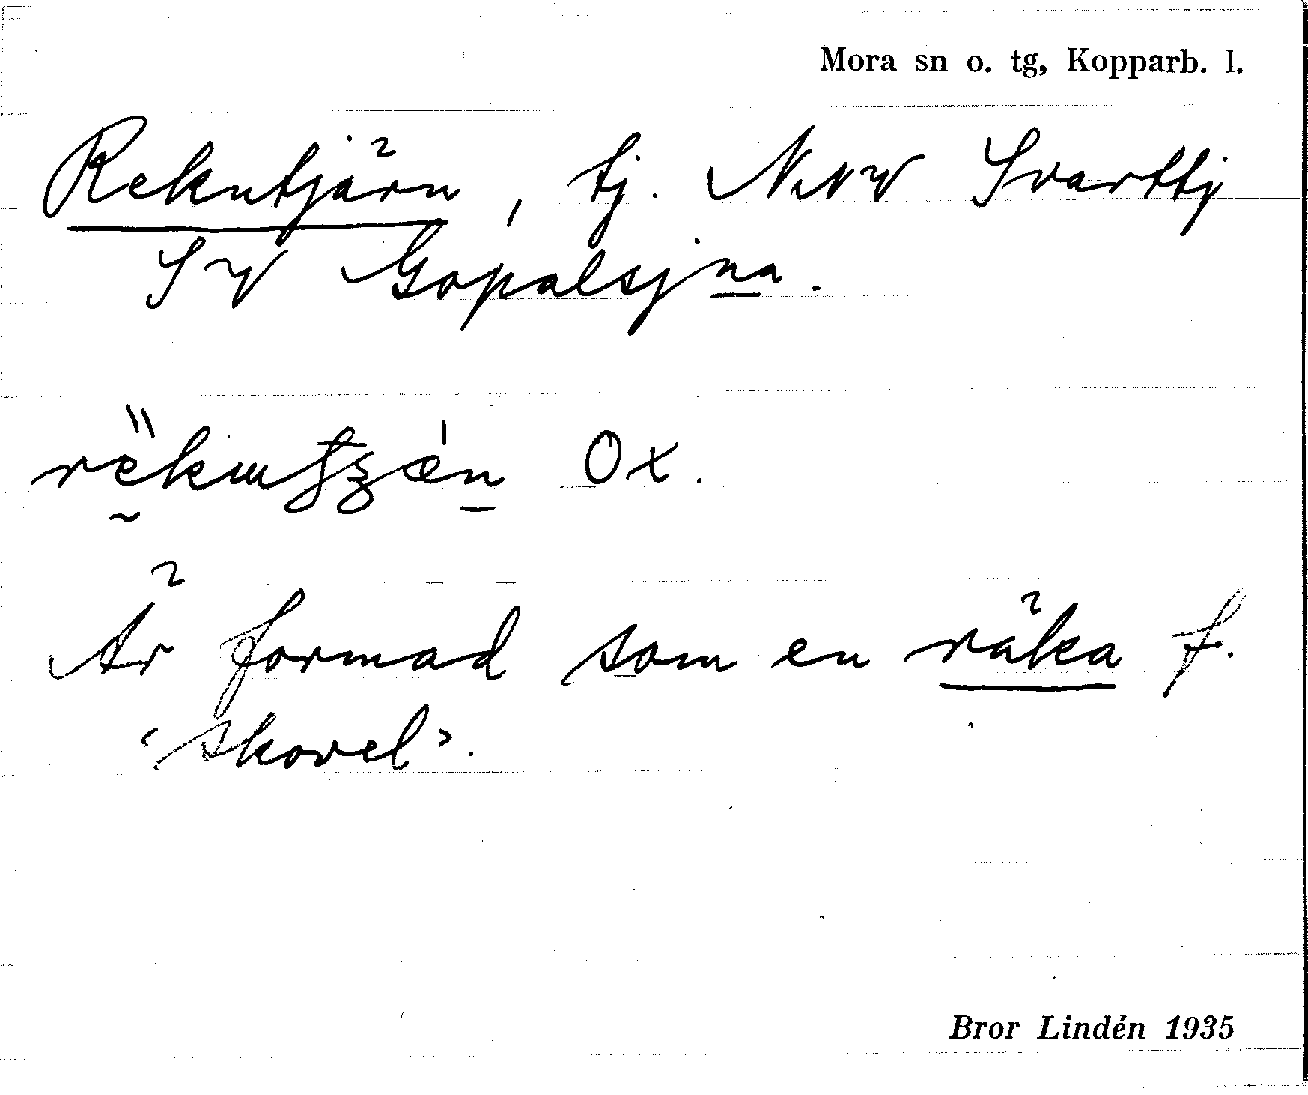 Mora sn o. tg, Kopparb. l.
Rekutjärn, tj. NNW Svarttj
SW Gopalsjna.
Ox.
Är formad som en räka f.
'skovel'.
Bror Lindén 1935